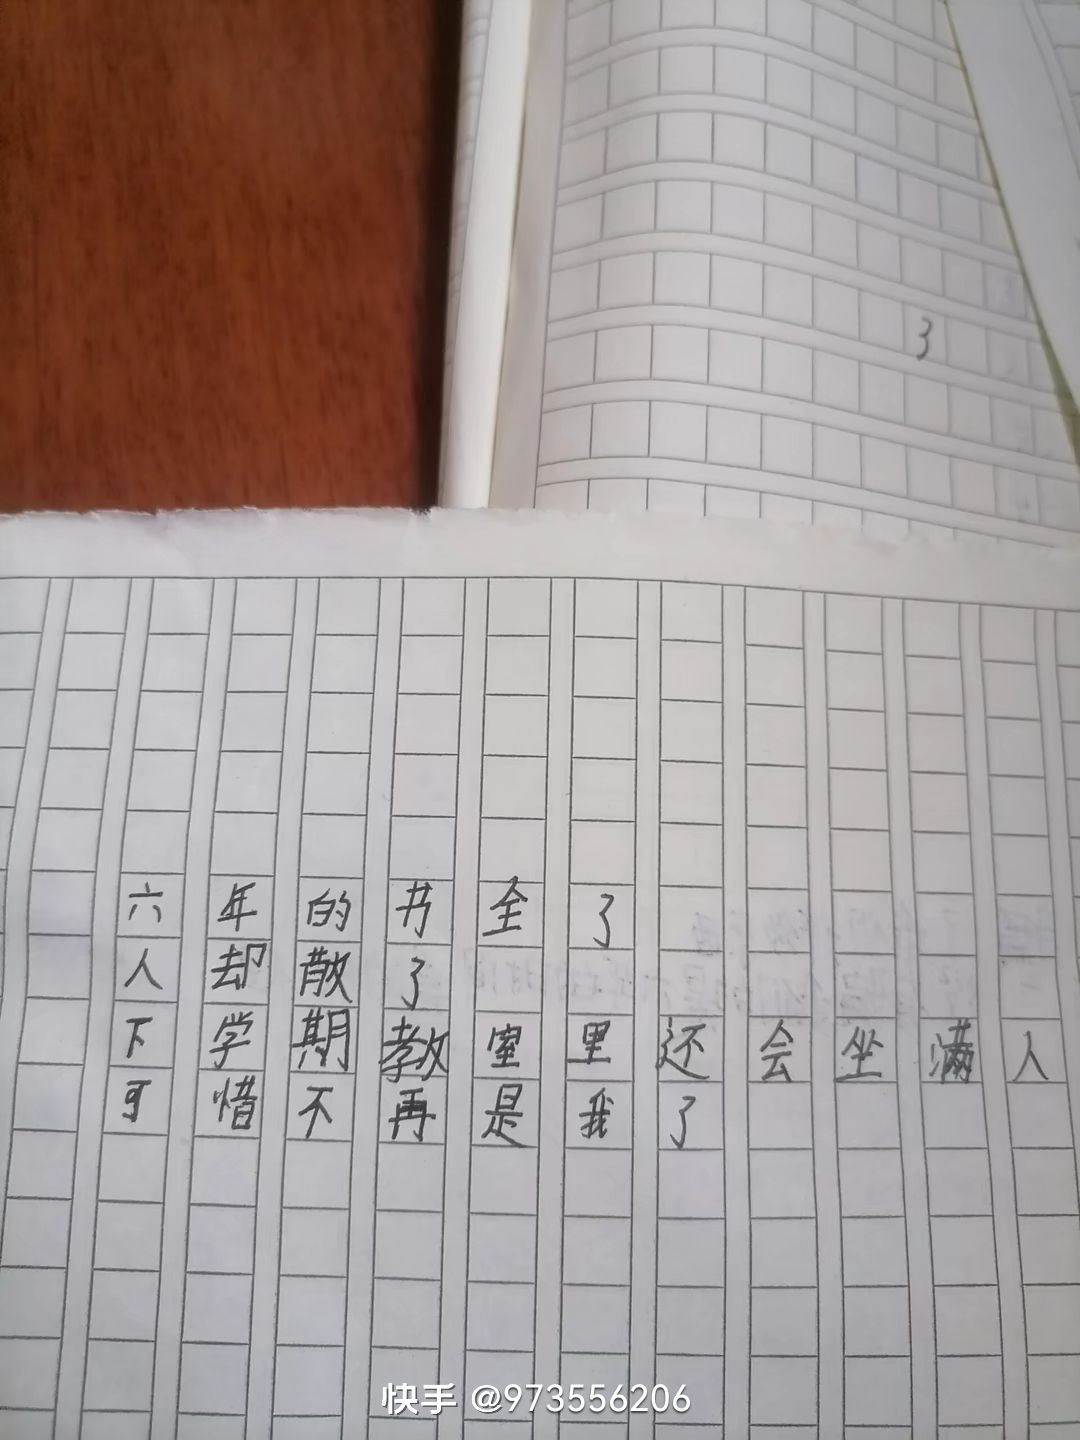 3
六年的书全了
人却散了
下学期教室里还会坐满人
可惜不再是我了
快手 @973556206